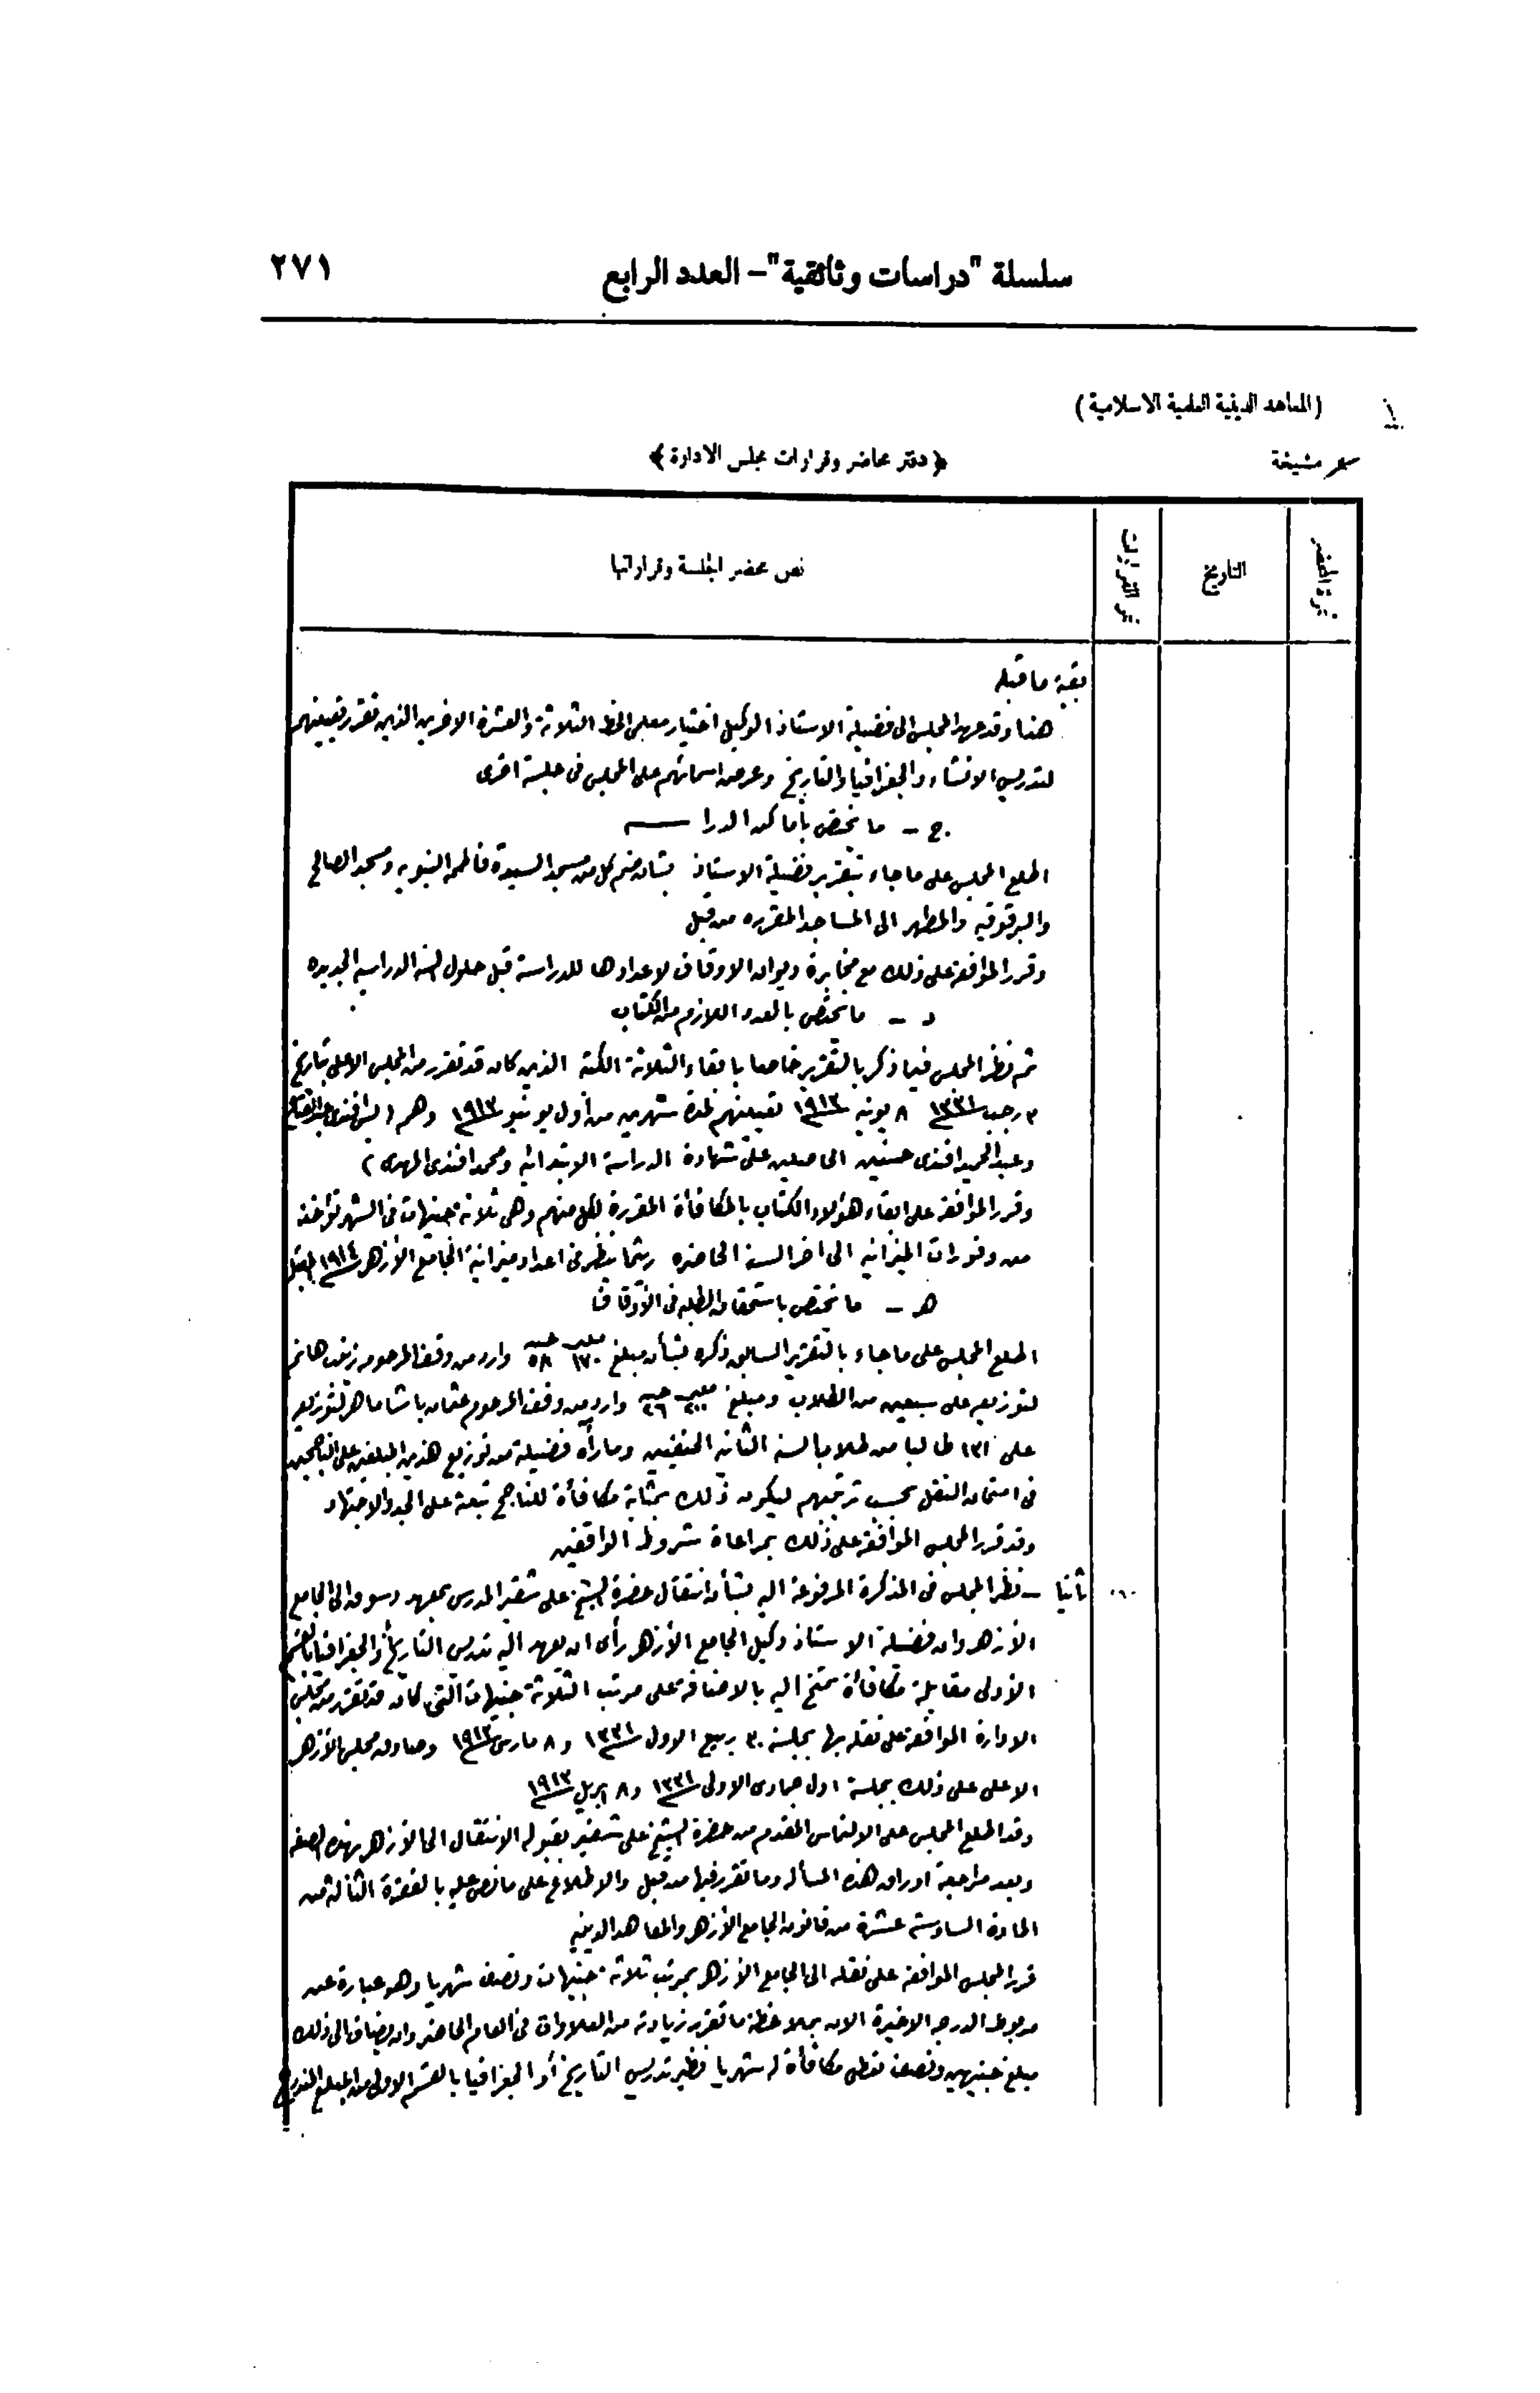 سلسلة "دراسات وثائقية" – العدد الرابع ٢٧١
(المعاهد الدينية العلمية الاسلامية)
مشيخة
﴿دفتر محاضر وقرارات مجلس الادارة﴾
نمرة المحضر
التاريخ
نمر القرارات
نص محضر الجلسة وقراراتها
بقية ما قبله
هذا وقد عهد المجلس الى فضيلة الاستاذ الوكيل اختيار معلمى الخط الثلاثة والعشرة الاخرين الذين تقرر تعيينهم
لتدريس الانشاء والجغرافيا والتاريخ وعرض اسمائهم على المجلس فى جلسة اخرى
ج – ما يختص بأماكن الدراسة
اطلع المجلس على ما جاء بتقرير فضيلة الاستاذ بشأن ضم كل من مسجد السيدة فاطمه النبويه ومسجد الصالح
والبرقوقيه والمطهر الى المساجد المقرره من قبل
وقرر الموافقة على ذلك مع مخابرة ديوان الاوقاف لاعدادها للدراسة قبل حلول السنه الدراسيه الجديده
د – ما يختص بالعدد اللازم من الكتاب
ثم نظر المجلس فيما ذكر بالتقرير خاصا بابقاء الثلاثة الكتبة الذين كان قد تقرر من المجلس الاعلى بتاريخ
٣ رجب ١٣٣١ ٨ يونيه ١٩١٣ تعيينهم لمدة شهرين من أول يونيو ١٩١٣ وهم (
وعبد الحميد افندى حسنين الحاصلين على شهادة الدراسة الابتدائيه ومحمد افندى المهدى)
وقرر الموافقة على ابقاء هؤلاء الكتاب بالمكافأة المقررة لكل منهم وهى ثلاثة جنيهات فى الشهر تؤخذ
من وفورات الميزانيه الى اخر السنة الحاضره ريثما ينظر فى اعداد ميزانية الجامع الأزهر ١٩١٤ المقبلة
هـ – ما يختص باستحقاق الطلبه فى الأوقاف
اطلع المجلس على ما جاء بالتقرير السابق ذكره بشأن مبلغ مليم ١٧٠ جنيه ٥٨ وارد من وقف المرحومه زينب هانم
لتوزيعه على سبعين من الطلاب ومبلغ مليم جنيه ٢٦ وارد من وقف المرحوم عثمان باشا ماهر لتوزيعه
على ١٣١ طالبا من طلاب السنه الثانيه الحنفيين وما رآه فضيلته من توزيع هذين المبلغين على الناجحين
فى امتحان النقل بحسب ترتيبهم ليكون ذلك بمثابة مكافأة للناجح تبعثه على الجد والاجتهاد
وقد قرر المجلس الموافقة على ذلك بمراعاة شروط الواقفين
ثانيا – نظر المجلس فى المذكرة المرفوعة اليه بشأن انتقال حضرة الشيخ على شقير المدرس بمعهد دسوق الى الجامع
الأزهر وان فضيلة الاستاذ وكيل الجامع الأزهر رأى ان يعهد اليه تدريس التاريخ والجغرافيا بالقسم
الأولى مقابلة مكافأة تمنح اليه بالاضافة على مرتب الثلاثة جنيهات التى كان قد تقرر من مجلس
الادارة الموافقة على نقله بها بجلسة ٣٠ ربيع الاول ١٣٣١ و ٨ مارس ١٩١٣ وصادق مجلس الأزهر
الاعلى على ذلك بجلسة اول جمادى الاولى ١٣٣١ و ٨ ابريل ١٩١٣
وقد اطلع المجلس على الالتماس المقدم من حضرة الشيخ على شقير بقبوله الانتقال الى الأزهر بهذه الصفه
وبعد مراجعة اوراق هذه المسأله وما تقرر فيها من قبل والاطلاع على ما نص عليه بالفقرة الثالثة من
المادة السادسة عشرة من قانون الجامع الأزهر والمعاهد الدينيه
قرر المجلس الموافقه على نقله الى الجامع الأزهر بمرتب ثلاثة جنيهات ونصف شهريا وهو عبارة عن
مربوط الدرجه الاخيرة الان بملاحظة ما تقرر زيادته من العلاوات فى العام الحاضر وان يضاف الى ذلك
مبلغ جنيهين ونصف تعطى مكافأة له شهريا نظير تدريس التاريخ أو الجغرافيا بالقسم الاولى من المبلغ المندرج